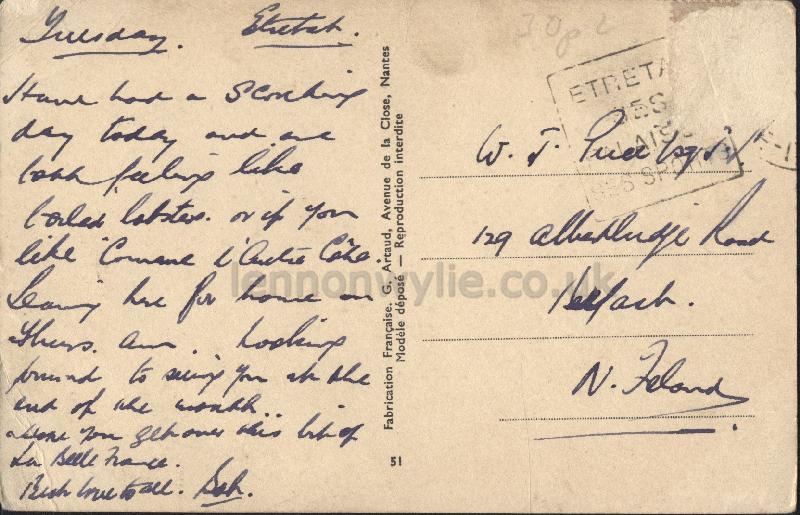 Tuesday. Etretat.
Have had a scorching
day today and are
both feeling like
boiled lobsters. or if you
like "Comme l'autre Côté.
Leaving here for home on
Thurs. am. Looking
forward to seeing you at the
end of the month..
Hope you get over this bit of
La Belle France.
Best love to all. Bob.
Fabrication Française. G. Artaud, Avenue de la Close, Nantes
Modèle déposé — Reproduction interdite
51
30p
ETRETA
SES
SES SP
W. J. Price Esq
129 Albertbridge Road
Belfast.
N. Ireland.
lennonwylie.co.uk